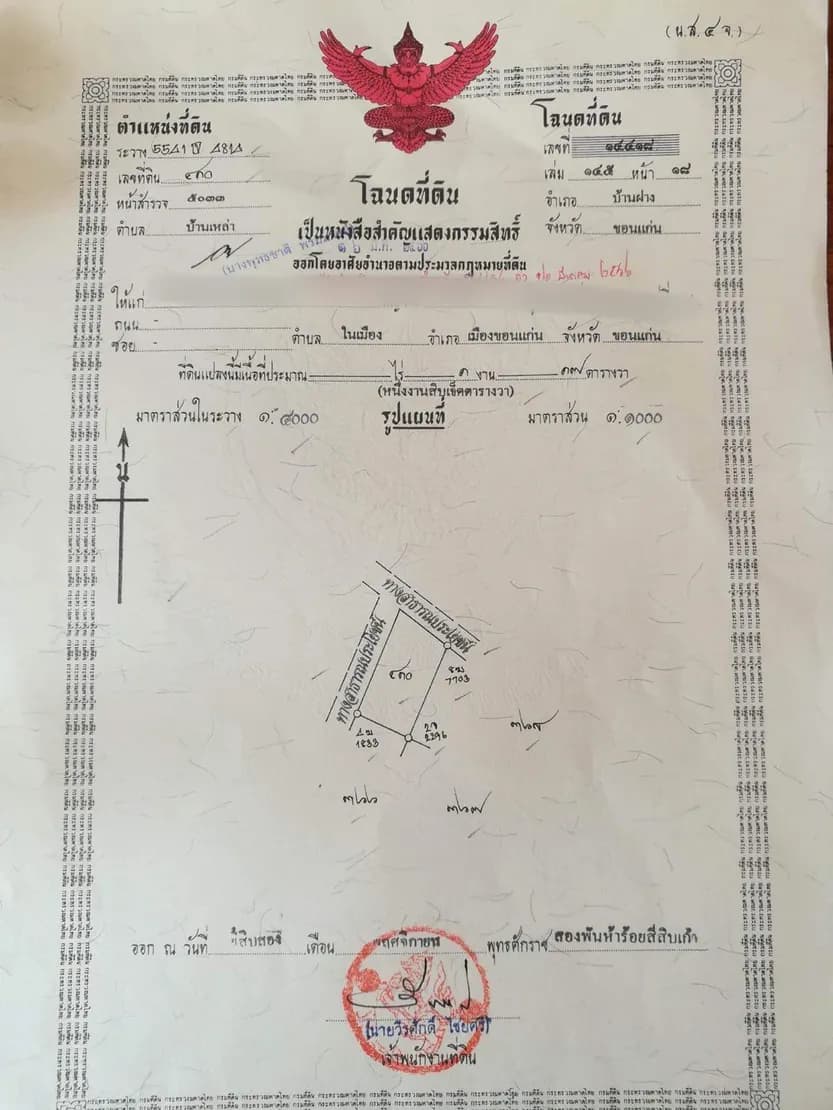 (น.ส.๔ จ.)
ตำแหน่งที่ดิน
ระวาง 5541 IV 4814
เลขที่ดิน ๔๓๐
หน้าสำรวจ ๕๐๓๓
ตำบล บ้านเหล่า
โฉนดที่ดิน
เลขที่ ๑๔๔๑๘
เล่ม ๑๔๕ หน้า ๑๘
อำเภอ บ้านฝาง
จังหวัด ขอนแก่น
โฉนดที่ดิน
เป็นหนังสือสำคัญแสดงกรรมสิทธิ์
ออกโดยอาศัยอำนาจตามประมวลกฎหมายที่ดิน
(นางพุทธชาติ
ให้แก่
ถนน -
ซอย - ตำบล ในเมือง อำเภอ เมืองขอนแก่น จังหวัด ขอนแก่น
ที่ดินแปลงนี้มีเนื้อที่ประมาณ ไร่ ๑ งาน ๑๗ ตารางวา
(หนึ่งงานสิบเจ็ดตารางวา)
มาตราส่วนในระวาง ๑:๔๐๐๐ รูปแผนที่ มาตราส่วน ๑:๑๐๐๐
น
ทางสาธารณประโยชน์
ทางสาธารณประโยชน์
๔๓๐
7703
1833
2296
๓๖๘
๓๖๖
๓๖๗
ออก ณ วันที่ ยี่สิบสอง เดือน พฤศจิกายน พุทธศักราช สองพันห้าร้อยสี่สิบเก้า
(นายวีรศักดิ์ ไชยศรี)
เจ้าพนักงานที่ดิน